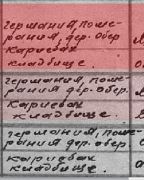 Германия, поме-
рания, дер. обер
Карневац
кладбище.
Германия, поме-
рания дер. обер.
Карневац
кладбище.
Германия, поме-
рания дер. обер
Карневац
кладбище.